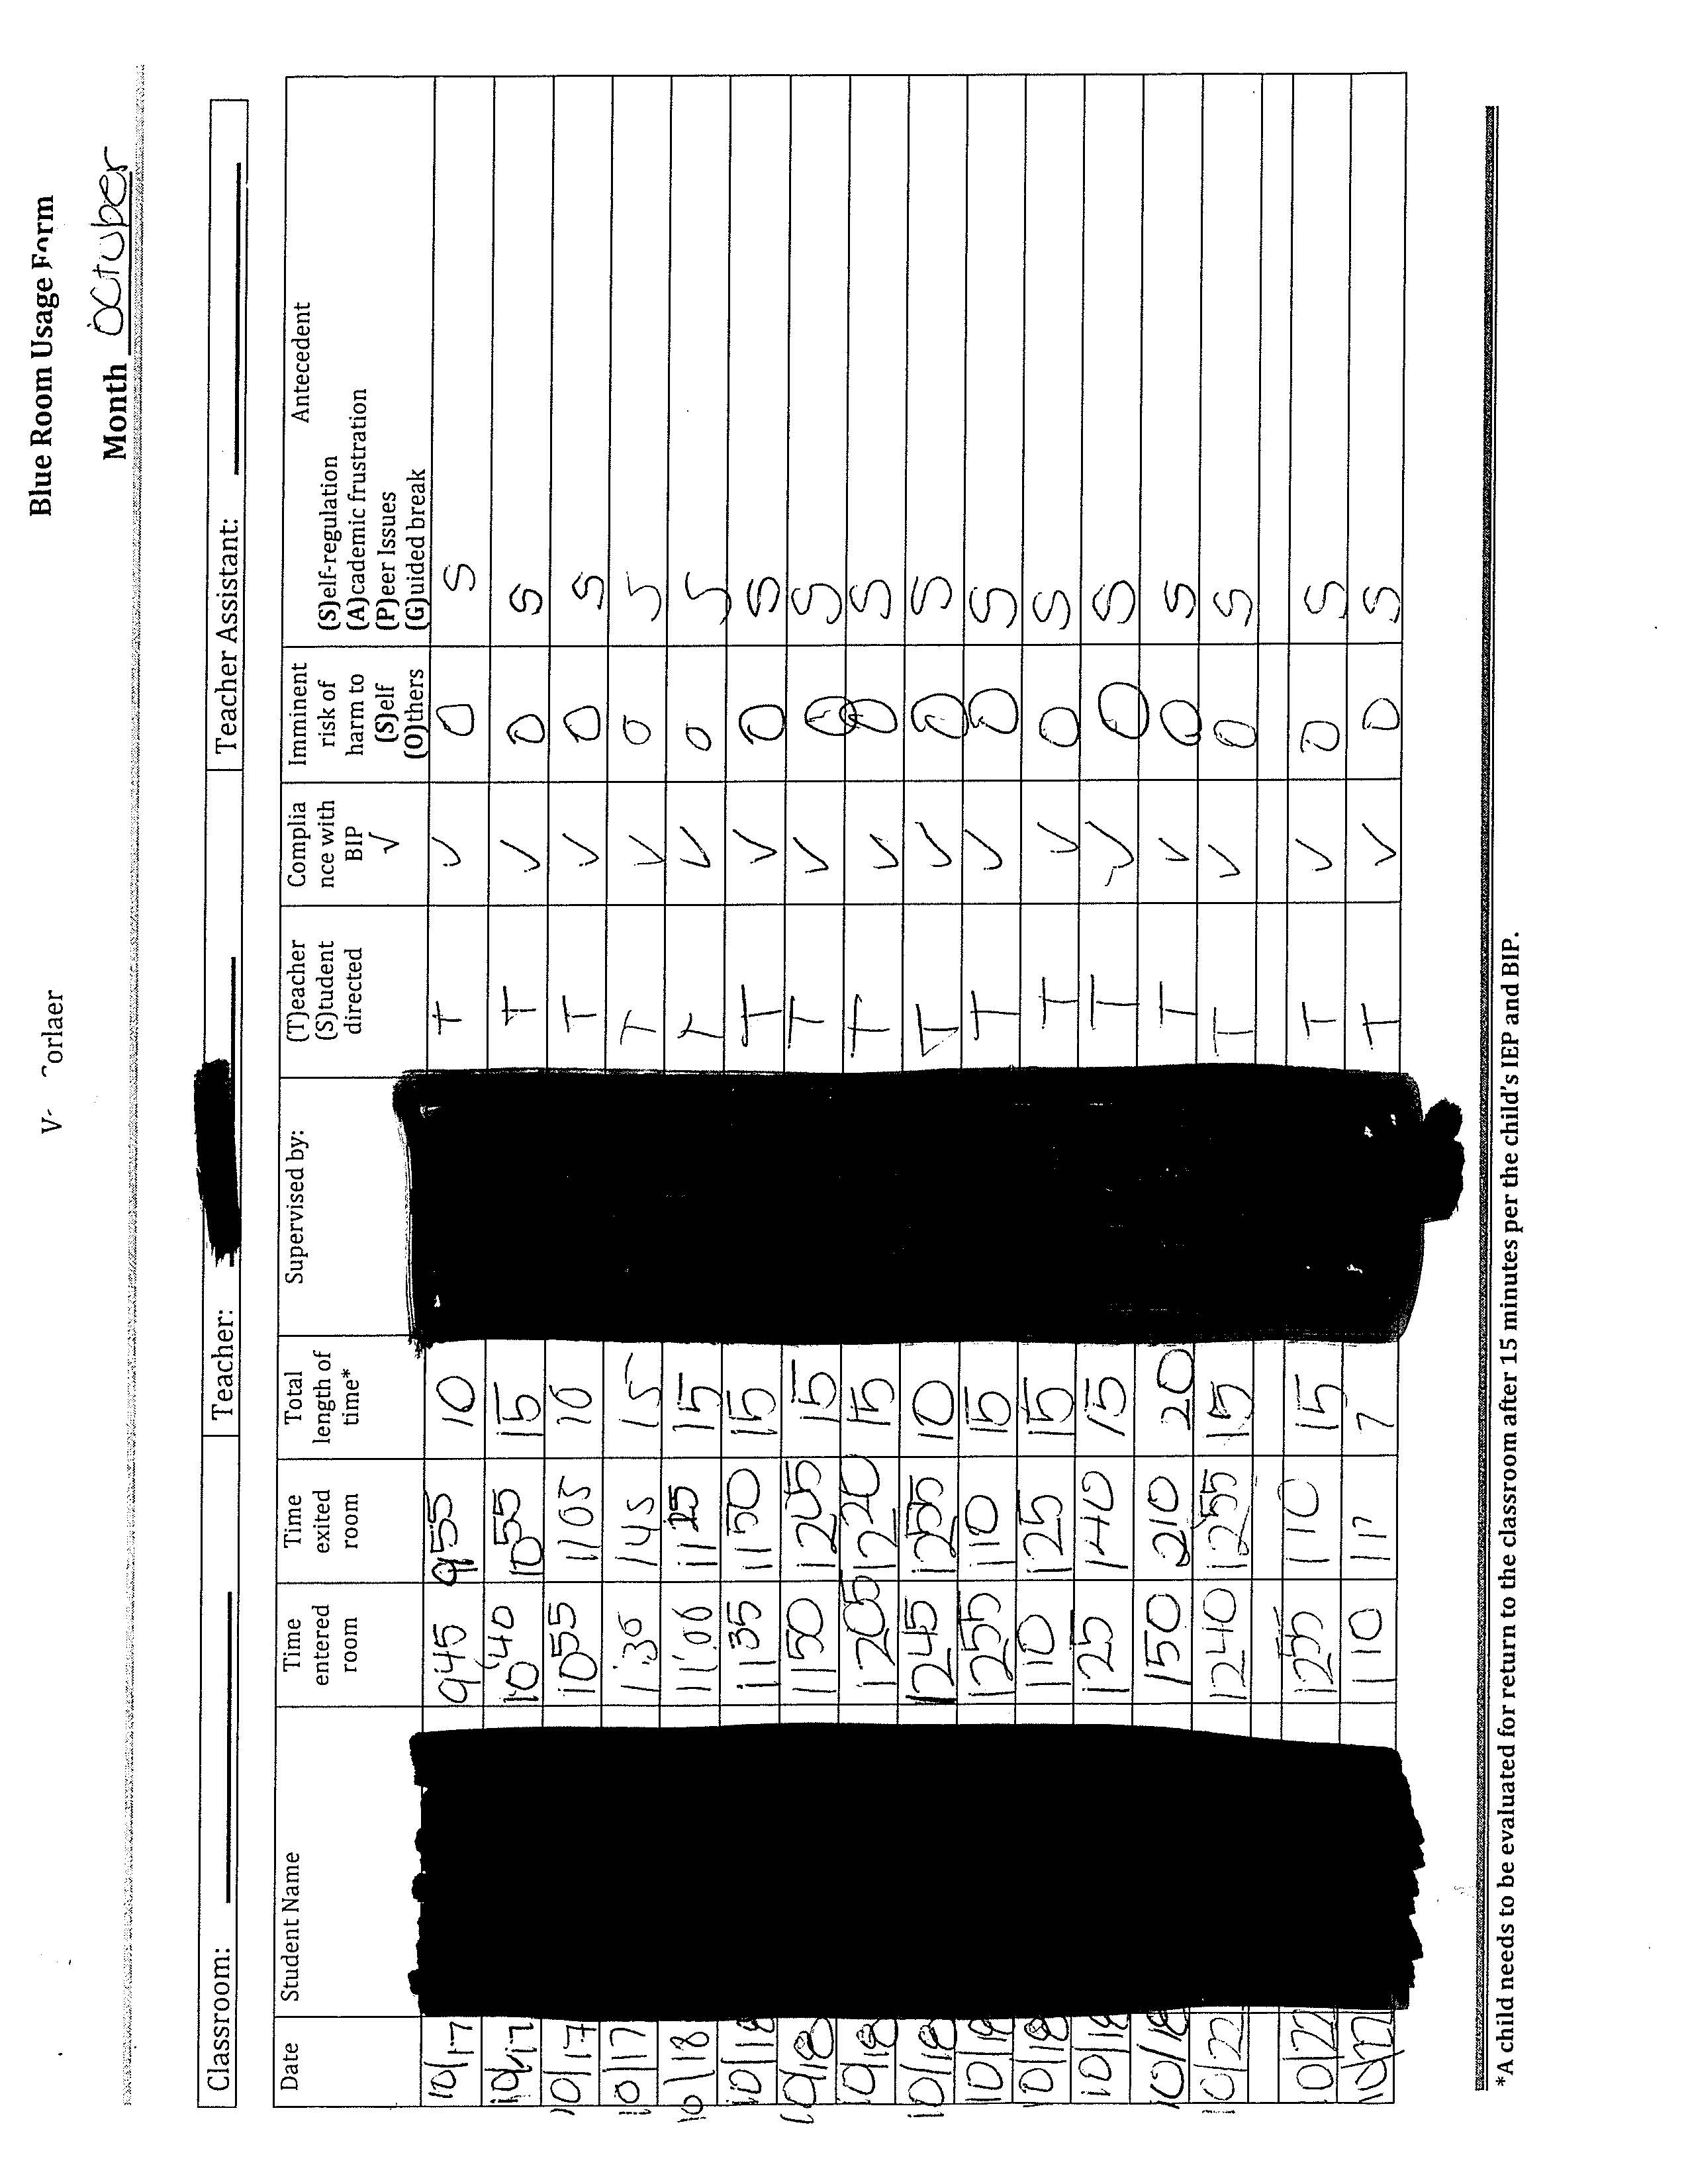 Blue Room Usage Form
Month October
Classroom: Teacher: Teacher Assistant:
Date Student Name Time entered room Time exited room Total length of time* Supervised by: (T)eacher (S)tudent directed Complia nce with BIP √ Imminent risk of harm to (S)elf (O)thers Antecedent (S)elf-regulation (A)cademic frustration (P)eer Issues (G)uided break
10/17 945 955 10 T √ O S
10/17 10:40 1055 15 T √ O S
10/17 1055 1105 10 T √ O S
10/17 1:30 145 15 T √ O S
10/18 11:00 1125 15 T √ O S
10/18 1135 1150 15 T √ O S
10/18 1150 1205 15 T √ O S
10/18 1205 1220 15 T √ O S
10/18 1245 1255 10 T √ O S
10/18 1255 110 15 T √ O S
10/18 110 125 15 T √ O S
10/18 125 140 15 T √ O S
10/18 150 210 20 T √ O S
10/22 1240 1255 15 T √ O S
10/22 1255 110 15 T √ O S
10/22 110 117 7 T √ O S
*A child needs to be evaluated for return to the classroom after 15 minutes per the child's IEP and BIP.